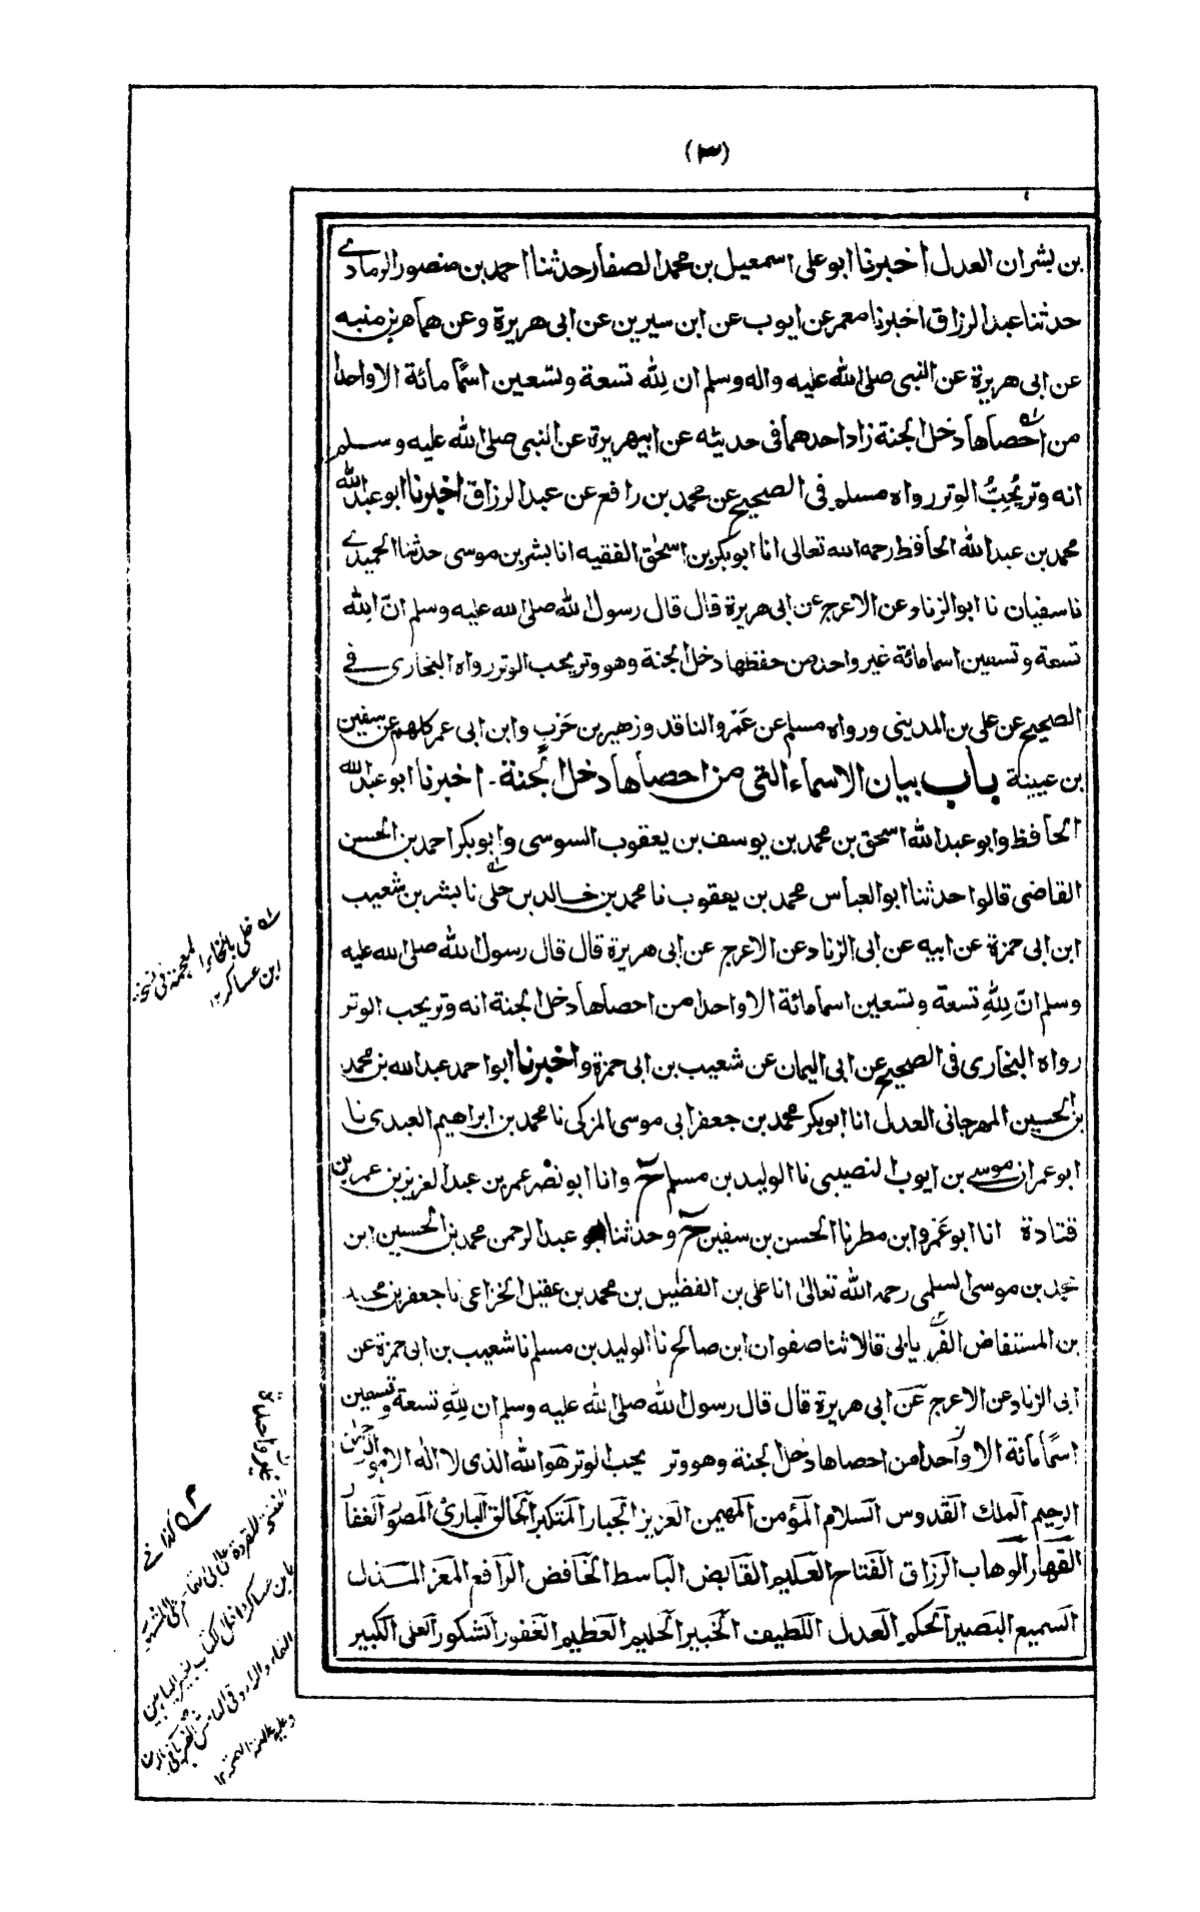 (٣)
بن بشران العدل اخبرنا ابو على اسمعيل بن محمد الصفار حدثنا احمد بن منصور الرمادے
حدثنا عبد الرزاق اخبرنا معمر عن ايوب عن ابن سيرين عن ابى هريرة وعن همام بن منبه
عن ابى هريرة عن النبى صلى الله عليه واله وسلم ان لِله تسعة وتسعين اسمًا مائة الا واحدا
من احصاها دخل الجنة زاد احدهما فى حديثه عن ابيهريرة عن النبى صلى الله عليه وسلم
انه وتر يُحِبُّ الوتر رواه مسلم فى الصحيح عن محمد بن رافع عن عبد الرزاق اخبرنا ابو عبد الله
محمد بن عبد الله الحافظ رحمه الله تعالى انا ابو بكر بن اسحٰق الفقيه انا بشر بن موسى حدثنا الحميدے
نا سفيان نا ابو الزناد عن الاعرج عن ابى هريرة قال قال رسول الله صلى الله عليه وسلم انّ لِله
تسعة وتسعين اسما مائة غير واحد من حفظها دخل الجنة وهو وتر يحب الوتر رواه البخارى فے
الصحيح عن على بن المدينى ورواه مسلم عن عَمْرو الناقد وزهير بن حَرْبٍ وابن ابى عمر كلهم عن سفين
بن عيينة باب بيان الاسماء التى من احصاها دخل الجنة - اخبرنا ابو عبد الله
الحافظ وابو عبد الله اسحق بن محمد بن يوسف بن يعقوب السوسى وابو بكر احمد بن الحسن
القاضى قالوا حدثنا ابو العباس محمد بن يعقوب نا محمد بن خالد بن خلى نا بشر بن شعيب
ابن ابى حمزة عن ابيه عن ابى الزناد عن الاعرج عن ابى هريرة قال قال رسول الله صلى الله عليه
وسلم انّ لِلهِ تسعة وتسعين اسما مائة الا واحدا من احصاها دخل الجنة انه وتر يحب الوتر
رواه البخارى فى الصحيح عن ابى اليمان عن شعيب بن ابى حمزة واخبرنا ابو احمد عبد الله بن محمد
بن الحسين المهرجانى العدل انا ابو بكر محمد بن جعفر ابى موسى المزكى نا محمد بن ابراهيم العبدى نا
ابو عمران موسے بن ايوب النصيبى نا الوليد بن مسلم ح وانا ابو نصْر عمر بن عبد العزيز بن عمر بن
قتادة انا ابو عَمْرو ابن مطر نا الحسن بن سفين ح وحدثنا ابو عبد الرحمن محمد بن الحسين ابن
محمد بن موسى السلمى رحمه الله تعالىٰ انا على بن الفضيل بن محمد بن عقيل الخزاعى نا جعفر بن محمد
بن المستفاض الفريابى قالا ثنا صفوان ابن صالح نا الوليد بن مسلم نا شعيب بن ابى حمزة عن
ابى الزناد عن الاعرج عن ابى هريرة قال قال رسول الله صلى الله عليه وسلم ان لِلهِ تسعة وتسعين
اسمًا مائة الا واحدا من احصاها دخل الجنة وهو وتر يحب الوتر هو الله الذى لا اله الا هو الرحمٰن
الرحيم الملك القدوس السلام المؤمن المهيمن العزيز الجبار المتكبر الخالق البارئ المصور الغفار
القهار الوهاب الرزاق الفتاح العليم القابض الباسط الخافض الرافع المعز المذل
السميع البصير الحكم العدل اللطيف الخبير الحليم العظيم الغفور الشكور العلى الكبير
خلى بالخاء المعجمة فى نسخة
ابن عساكر ١٢
غير واحد
كذا فے